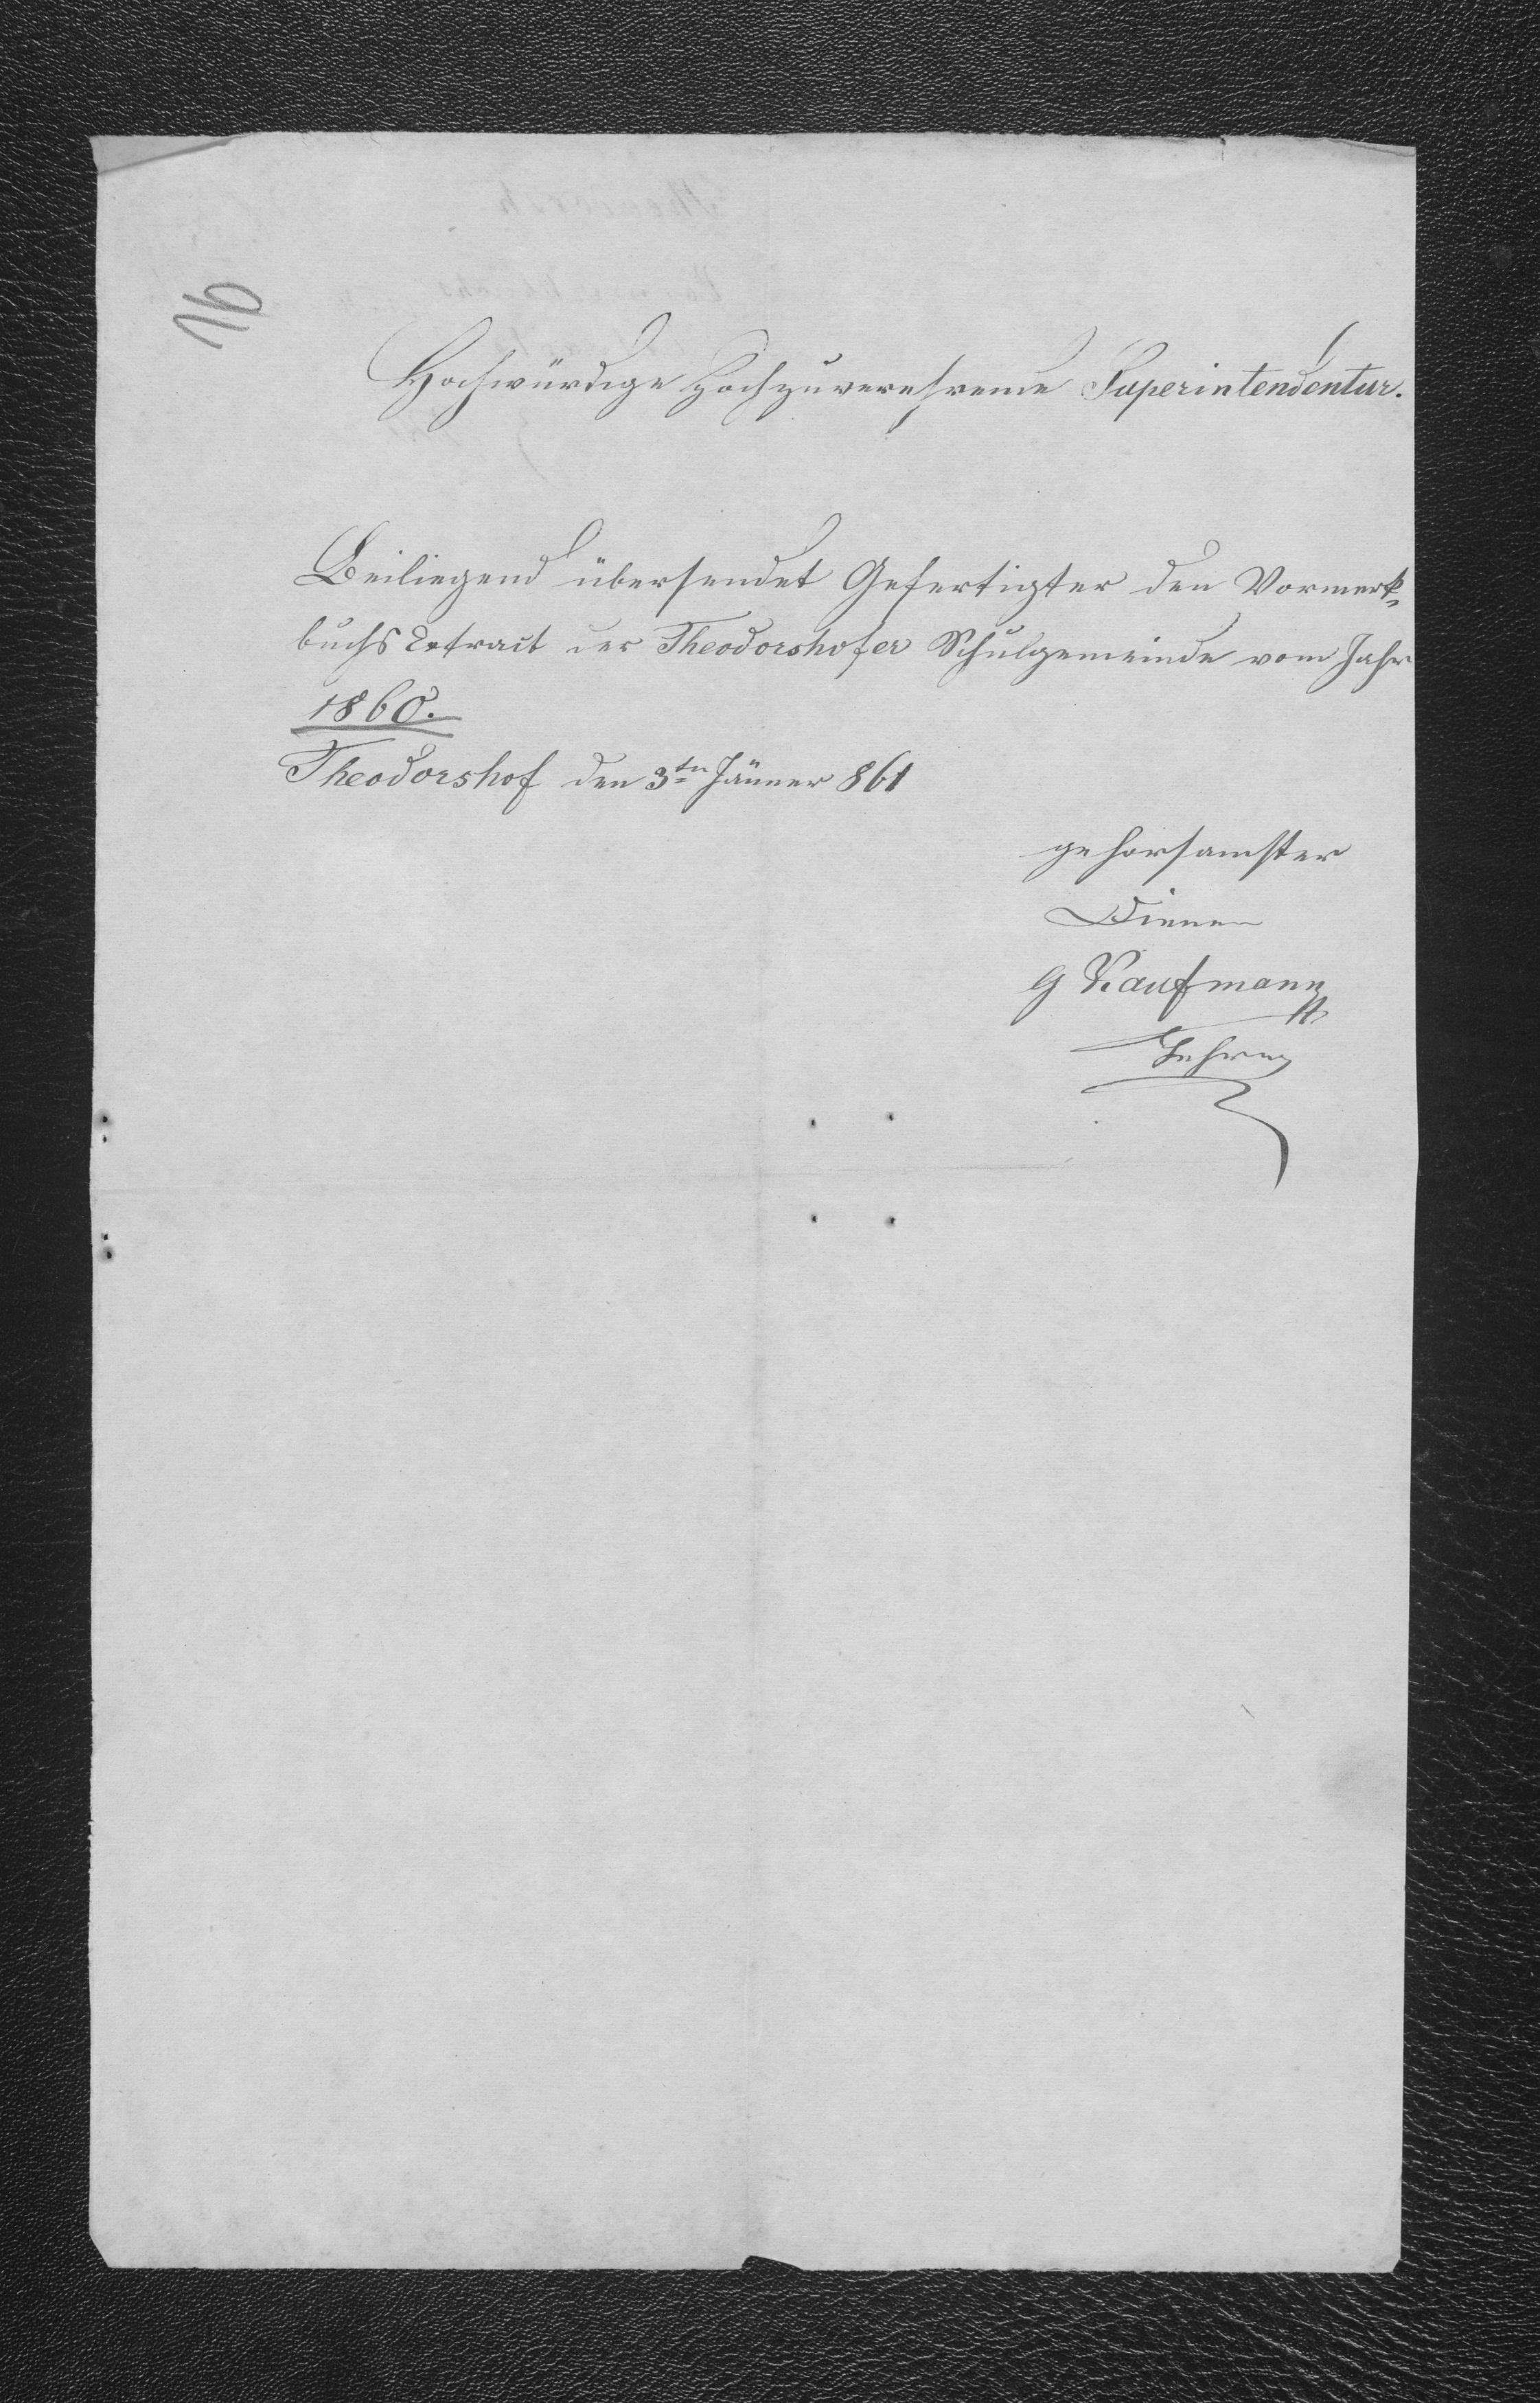 16
Hochwürdige Hochzuverehrende Superintendentur.
Beiliegend übersendet Gefertigter den Vormerk=
buchs Extract der Theodorshofer Schulgemeinde vom Jahr
1860.
Theodorshof den 3ten Jänner 861
gehorsamster
Diener
G Kaufmann
Lehrer